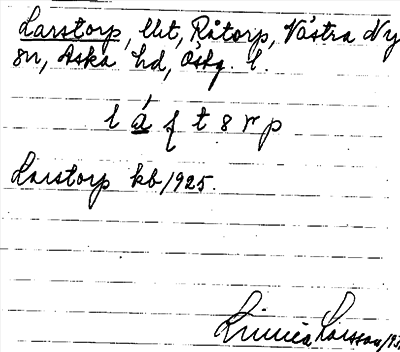 Larstorp, lht, Råtorp, Västra Ny
sn, Aska hd, Östg. l.
l á f t s r p
Larstorp kb/1925.
Linnéa Larsson